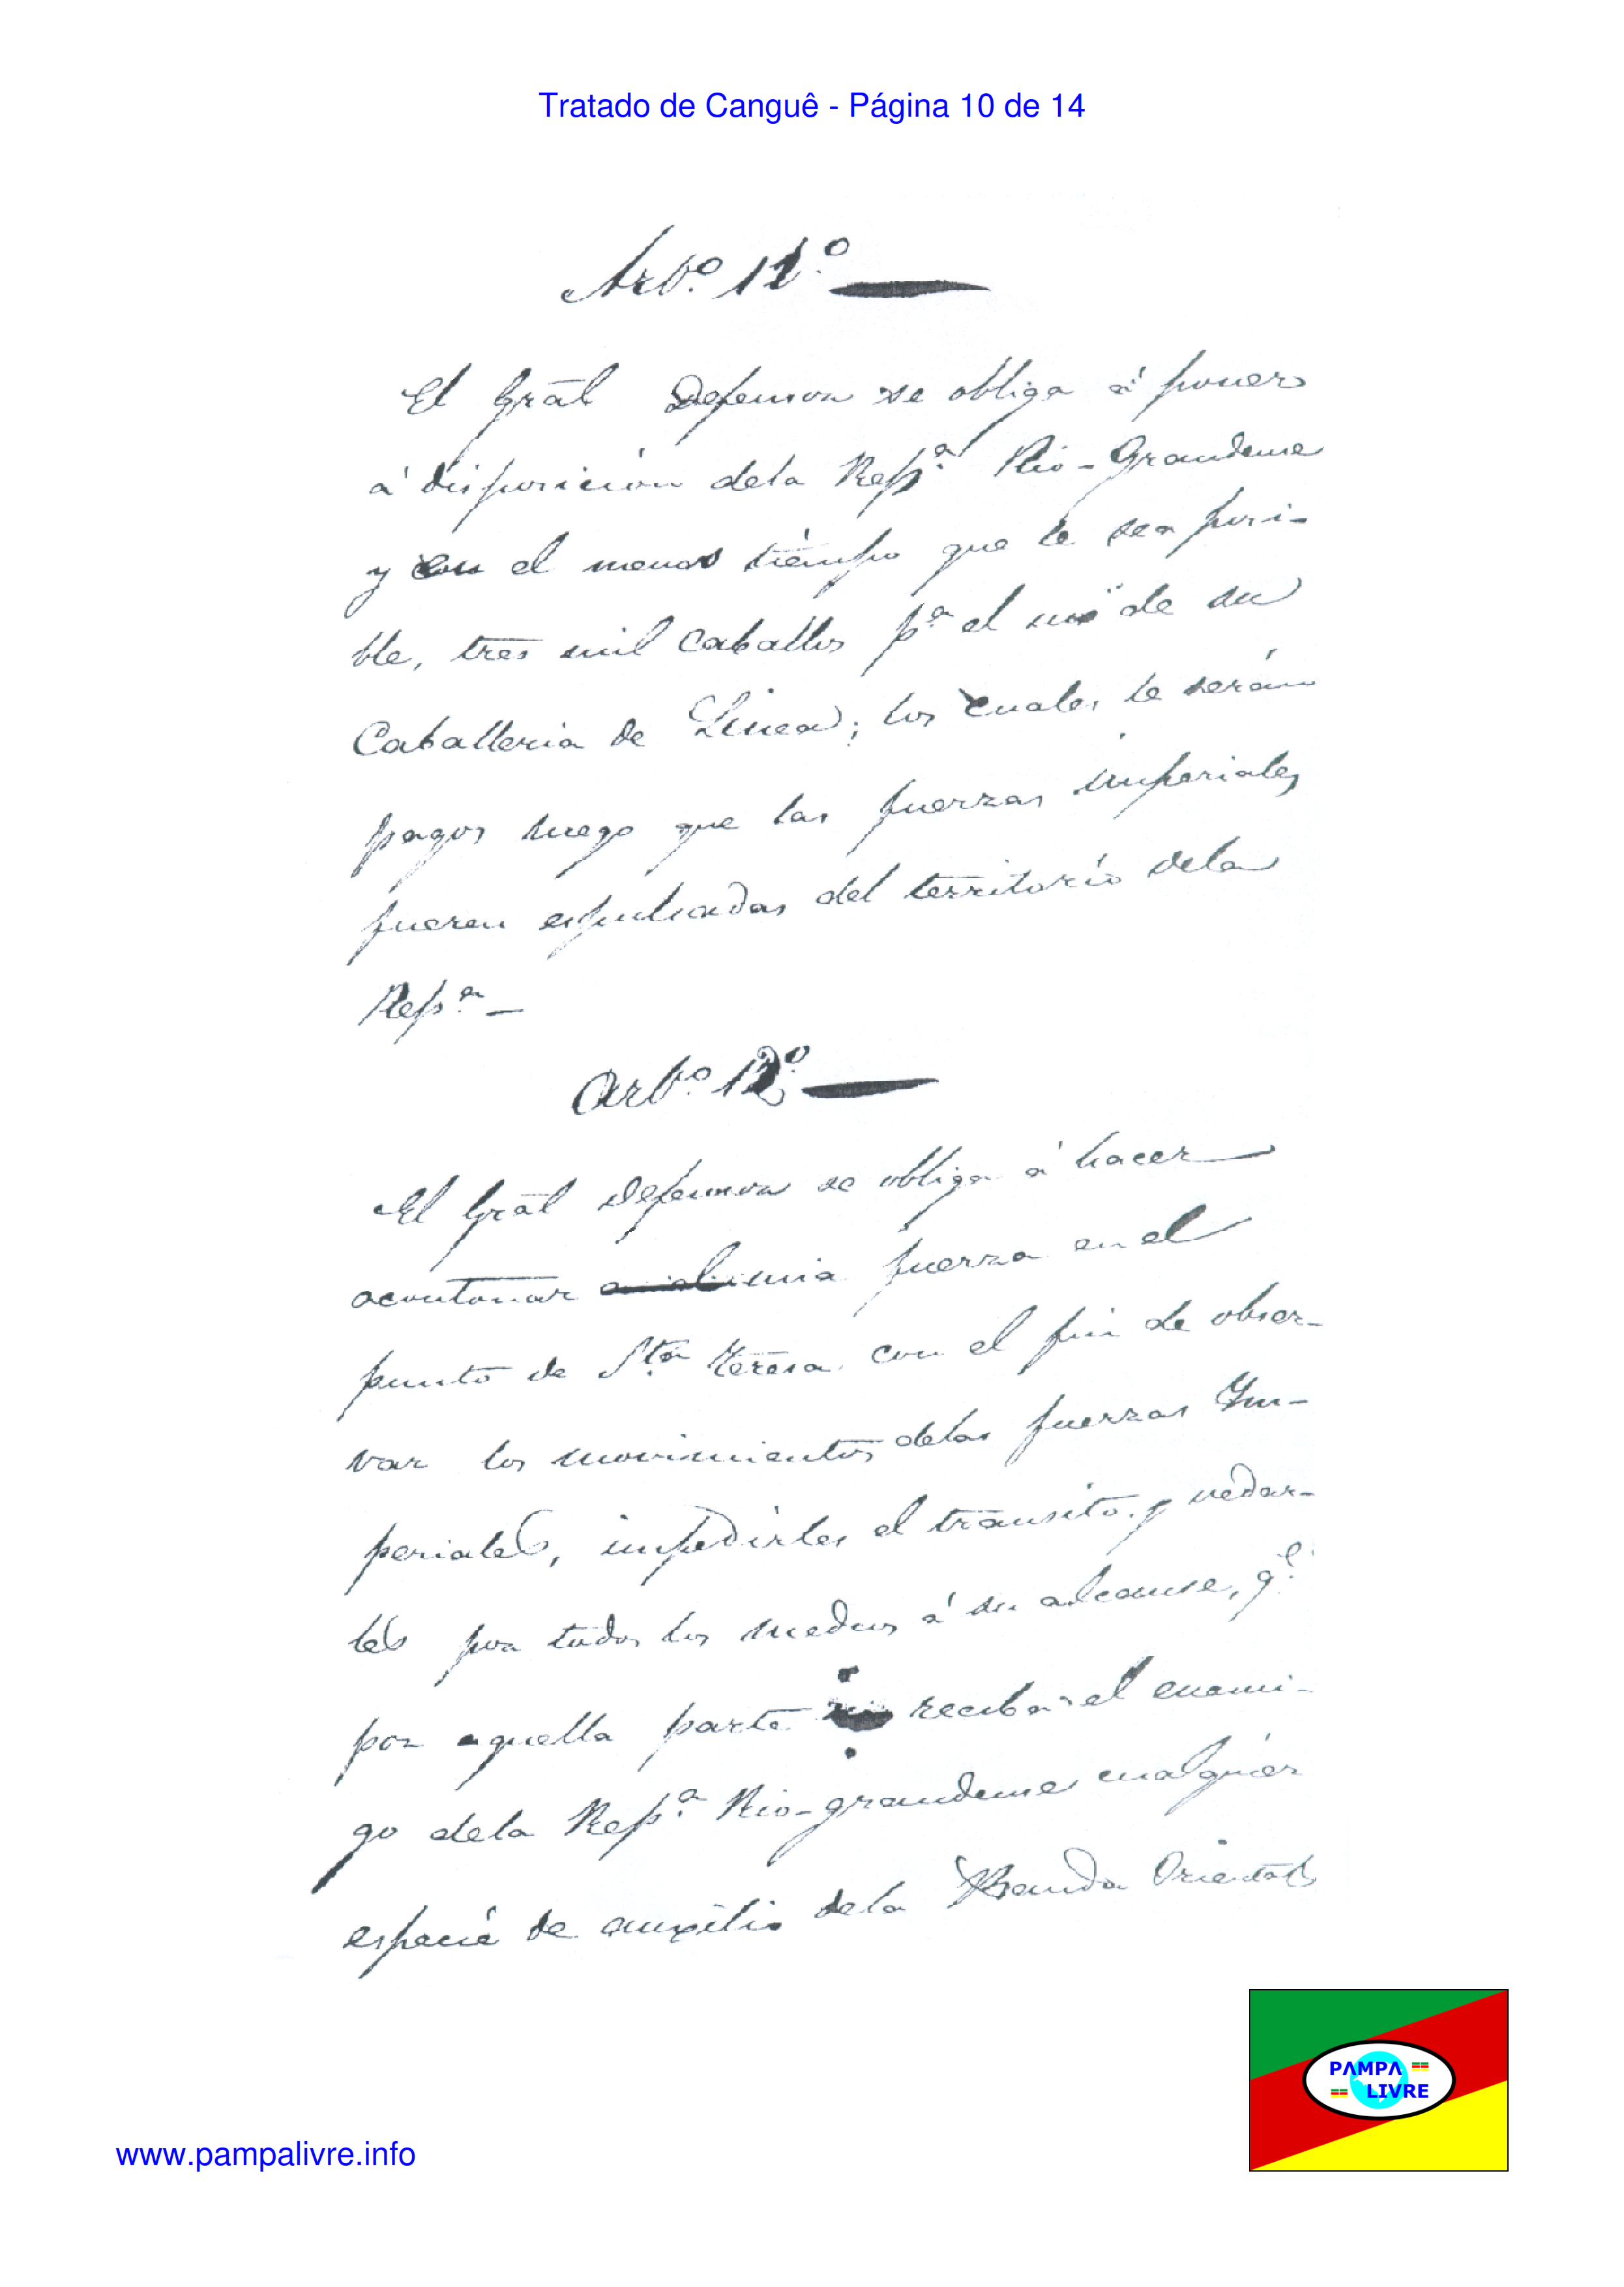 Tratado de Canguê - Página 10 de 14
Arto. 11o.
El Grāl Defensor se obliga á poner
á disposición dela Repa. Rio-Grandense
y con el menor tiempo que le sea posi-
ble, tres mil Caballos pa. el uso de su
Caballeria de Linea; los cuales le serán
pagos luego que las fuerzas imperiales
fueren espulsadas del territorio dela
Repa.-
Arto. 12o.
El Grāl Defensor se obliga á hacer
acantonar fuerza en el
punto de Sta. Teresa con el fin de obser-
var los movimientos delas fuerzas Ym-
periales, impedirles el transito y vedar-
les por todos los medios á su alcanse, qe.
por aquella parte reciba el enemi-
go dela Repa. Rio-grandense cualquier
especie de auxilio dela Banda Oriental
PAMPA
LIVRE
www.pampalivre.info